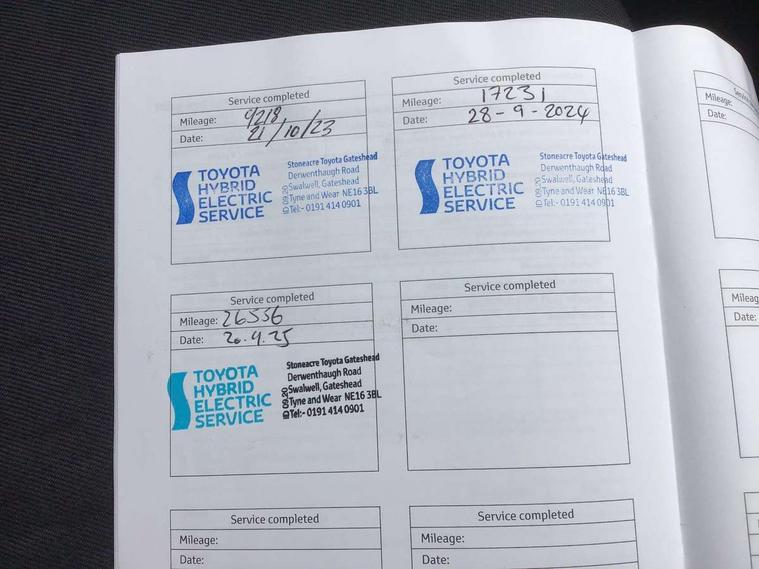 Service completed
Mileage: 9218
Date: 21/10/23
TOYOTA
HYBRID
ELECTRIC
SERVICE
Stoneacre Toyota Gateshead
Derwenthaugh Road
Swalwell, Gateshead
Tyne and Wear NE16 3BL
Tel:- 0191 414 0901
Service completed
Mileage: 17231
Date: 28-9-2024
TOYOTA
HYBRID
ELECTRIC
SERVICE
Stoneacre Toyota Gateshead
Derwenthaugh Road
Swalwell, Gateshead
Tyne and Wear NE16 3BL
Tel:- 0191 414 0901
Mileage:
Date:
Service completed
Mileage: 26556
Date: 20.9.25
TOYOTA
HYBRID
ELECTRIC
SERVICE
Stoneacre Toyota Gateshead
Derwenthaugh Road
Swalwell, Gateshead
Tyne and Wear NE16 3BL
Tel:- 0191 414 0901
Service completed
Mileage:
Date:
Mileag
Date:
Service completed
Mileage:
Date:
Service completed
Mileage:
Date: